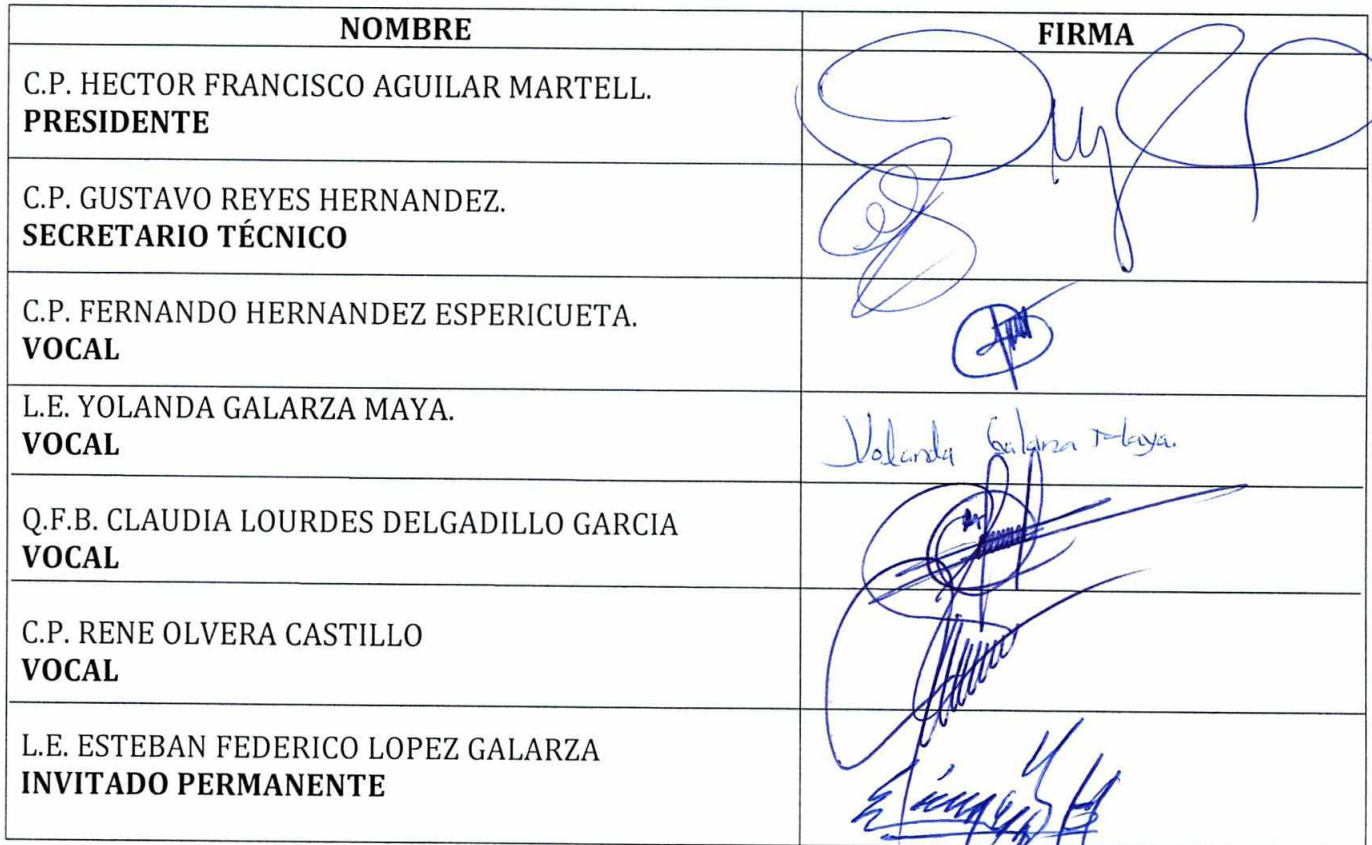 NOMBRE FIRMA
C.P. HECTOR FRANCISCO AGUILAR MARTELL.
PRESIDENTE
C.P. GUSTAVO REYES HERNANDEZ.
SECRETARIO TÉCNICO
C.P. FERNANDO HERNANDEZ ESPERICUETA.
VOCAL
L.E. YOLANDA GALARZA MAYA.
VOCAL
Yolanda Galarza Maya.
Q.F.B. CLAUDIA LOURDES DELGADILLO GARCIA
VOCAL
C.P. RENE OLVERA CASTILLO
VOCAL
L.E. ESTEBAN FEDERICO LOPEZ GALARZA
INVITADO PERMANENTE